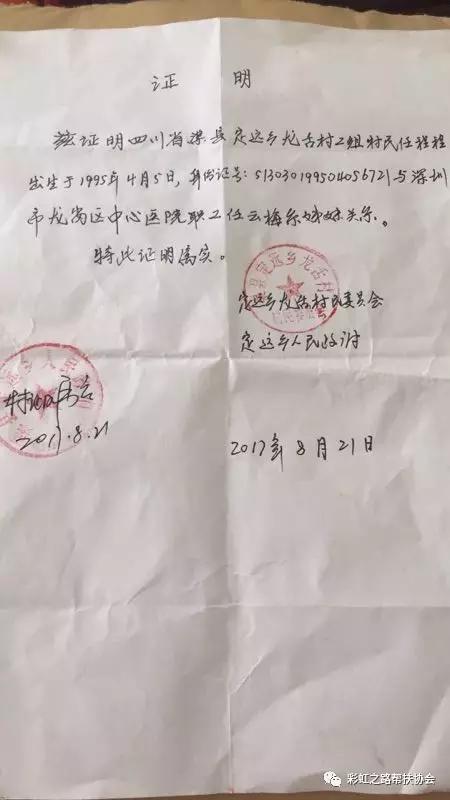 证 明
兹证明四川省渠县定远乡龙舌村2组村民任程程
出生于1995年4月5日,身份证号:513030199504056721与深圳
市龙岗区中心医院职工任云梅系姊妹关系。
特此证明属实。
县定远乡龙舌村
定远乡龙舌村民委员会
定远乡人民政府
2017.8.21
2017年8月21日
彩虹之路帮扶协会